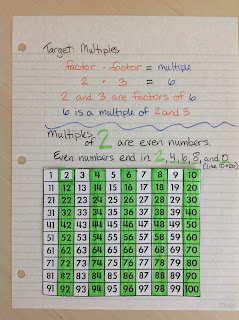 Target: Multiples
factor · factor = multiple
2 · 3 = 6
2 and 3 are factors of 6
6 is a multiple of 2 and 3
Multiples
of 2 are even numbers.
Even numbers end in 2, 4, 6, 8, and 0
(like 10+20)
1 2 3 4 5 6 7 8 9 10
11 12 13 14 15 16 17 18 19 20
21 22 23 24 25 26 27 28 29 30
31 32 33 34 35 36 37 38 39 40
41 42 43 44 45 46 47 48 49 50
51 52 53 54 55 56 57 58 59 60
61 62 63 64 65 66 67 68 69 70
71 72 73 74 75 76 77 78 79 80
81 82 83 84 85 86 87 88 89 90
91 92 93 94 95 96 97 98 99 100